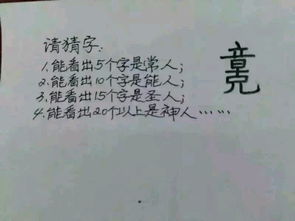 请猜字:
1.能看出5个字是常人;
2.能看出10个字是能人;
3.能看出15个字是圣人;
4.能看出20个以上是神人……
竟